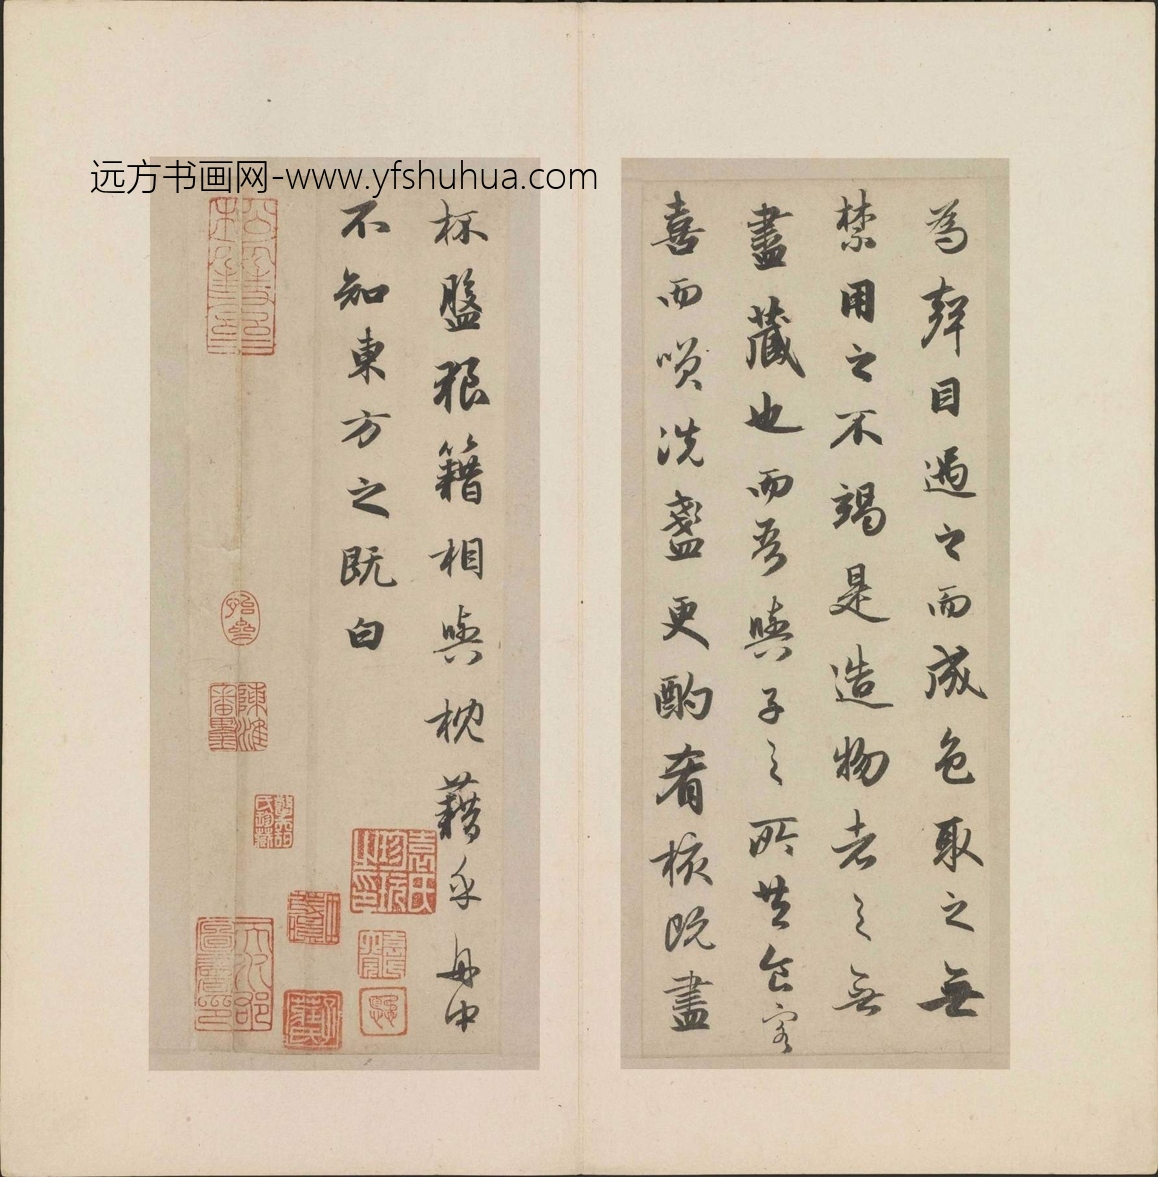 远方书画网-www.yfshuhua.com
為聲目遇之而成色取之無
禁用之不竭是造物者之無
盡藏也而吾與子之所共食客
喜而笑洗盞更酌肴核既盡
杯盤狼籍相與枕藉乎舟中
不知東方之既白
袁氏珍玩之印
陳淮審墨